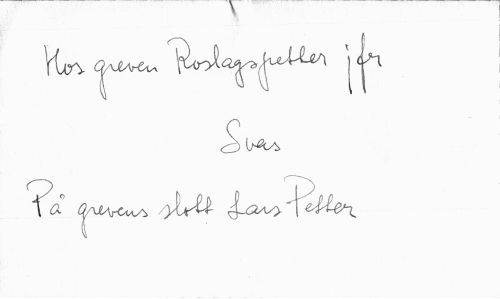 Hos greven Roslagspetter jfr
Svas
På grevens slott Lars Petter